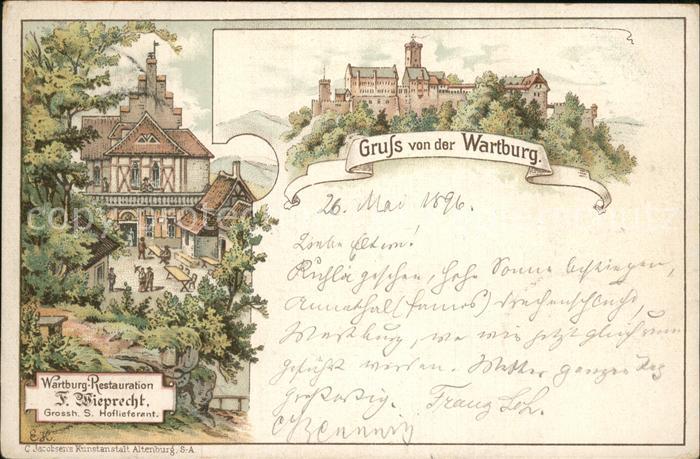 Gruss von der Wartburg.
26. Mai 1896.
Liebe Eltern!
Ruhla gesehen, hohe Sonne bestiegen,
Annathal (famos) Drachenschlucht,
Wartburg, wo wir jetzt gleich rum
geführt werden. Wetter ganzen Tag
großartig. Franz Loh.
Wartburg-Restauration
F. Wieprecht.
Grossh. S. Hoflieferant.
E.K.
C. Jacobsen's Kunstanstalt Altenburg, S-A.